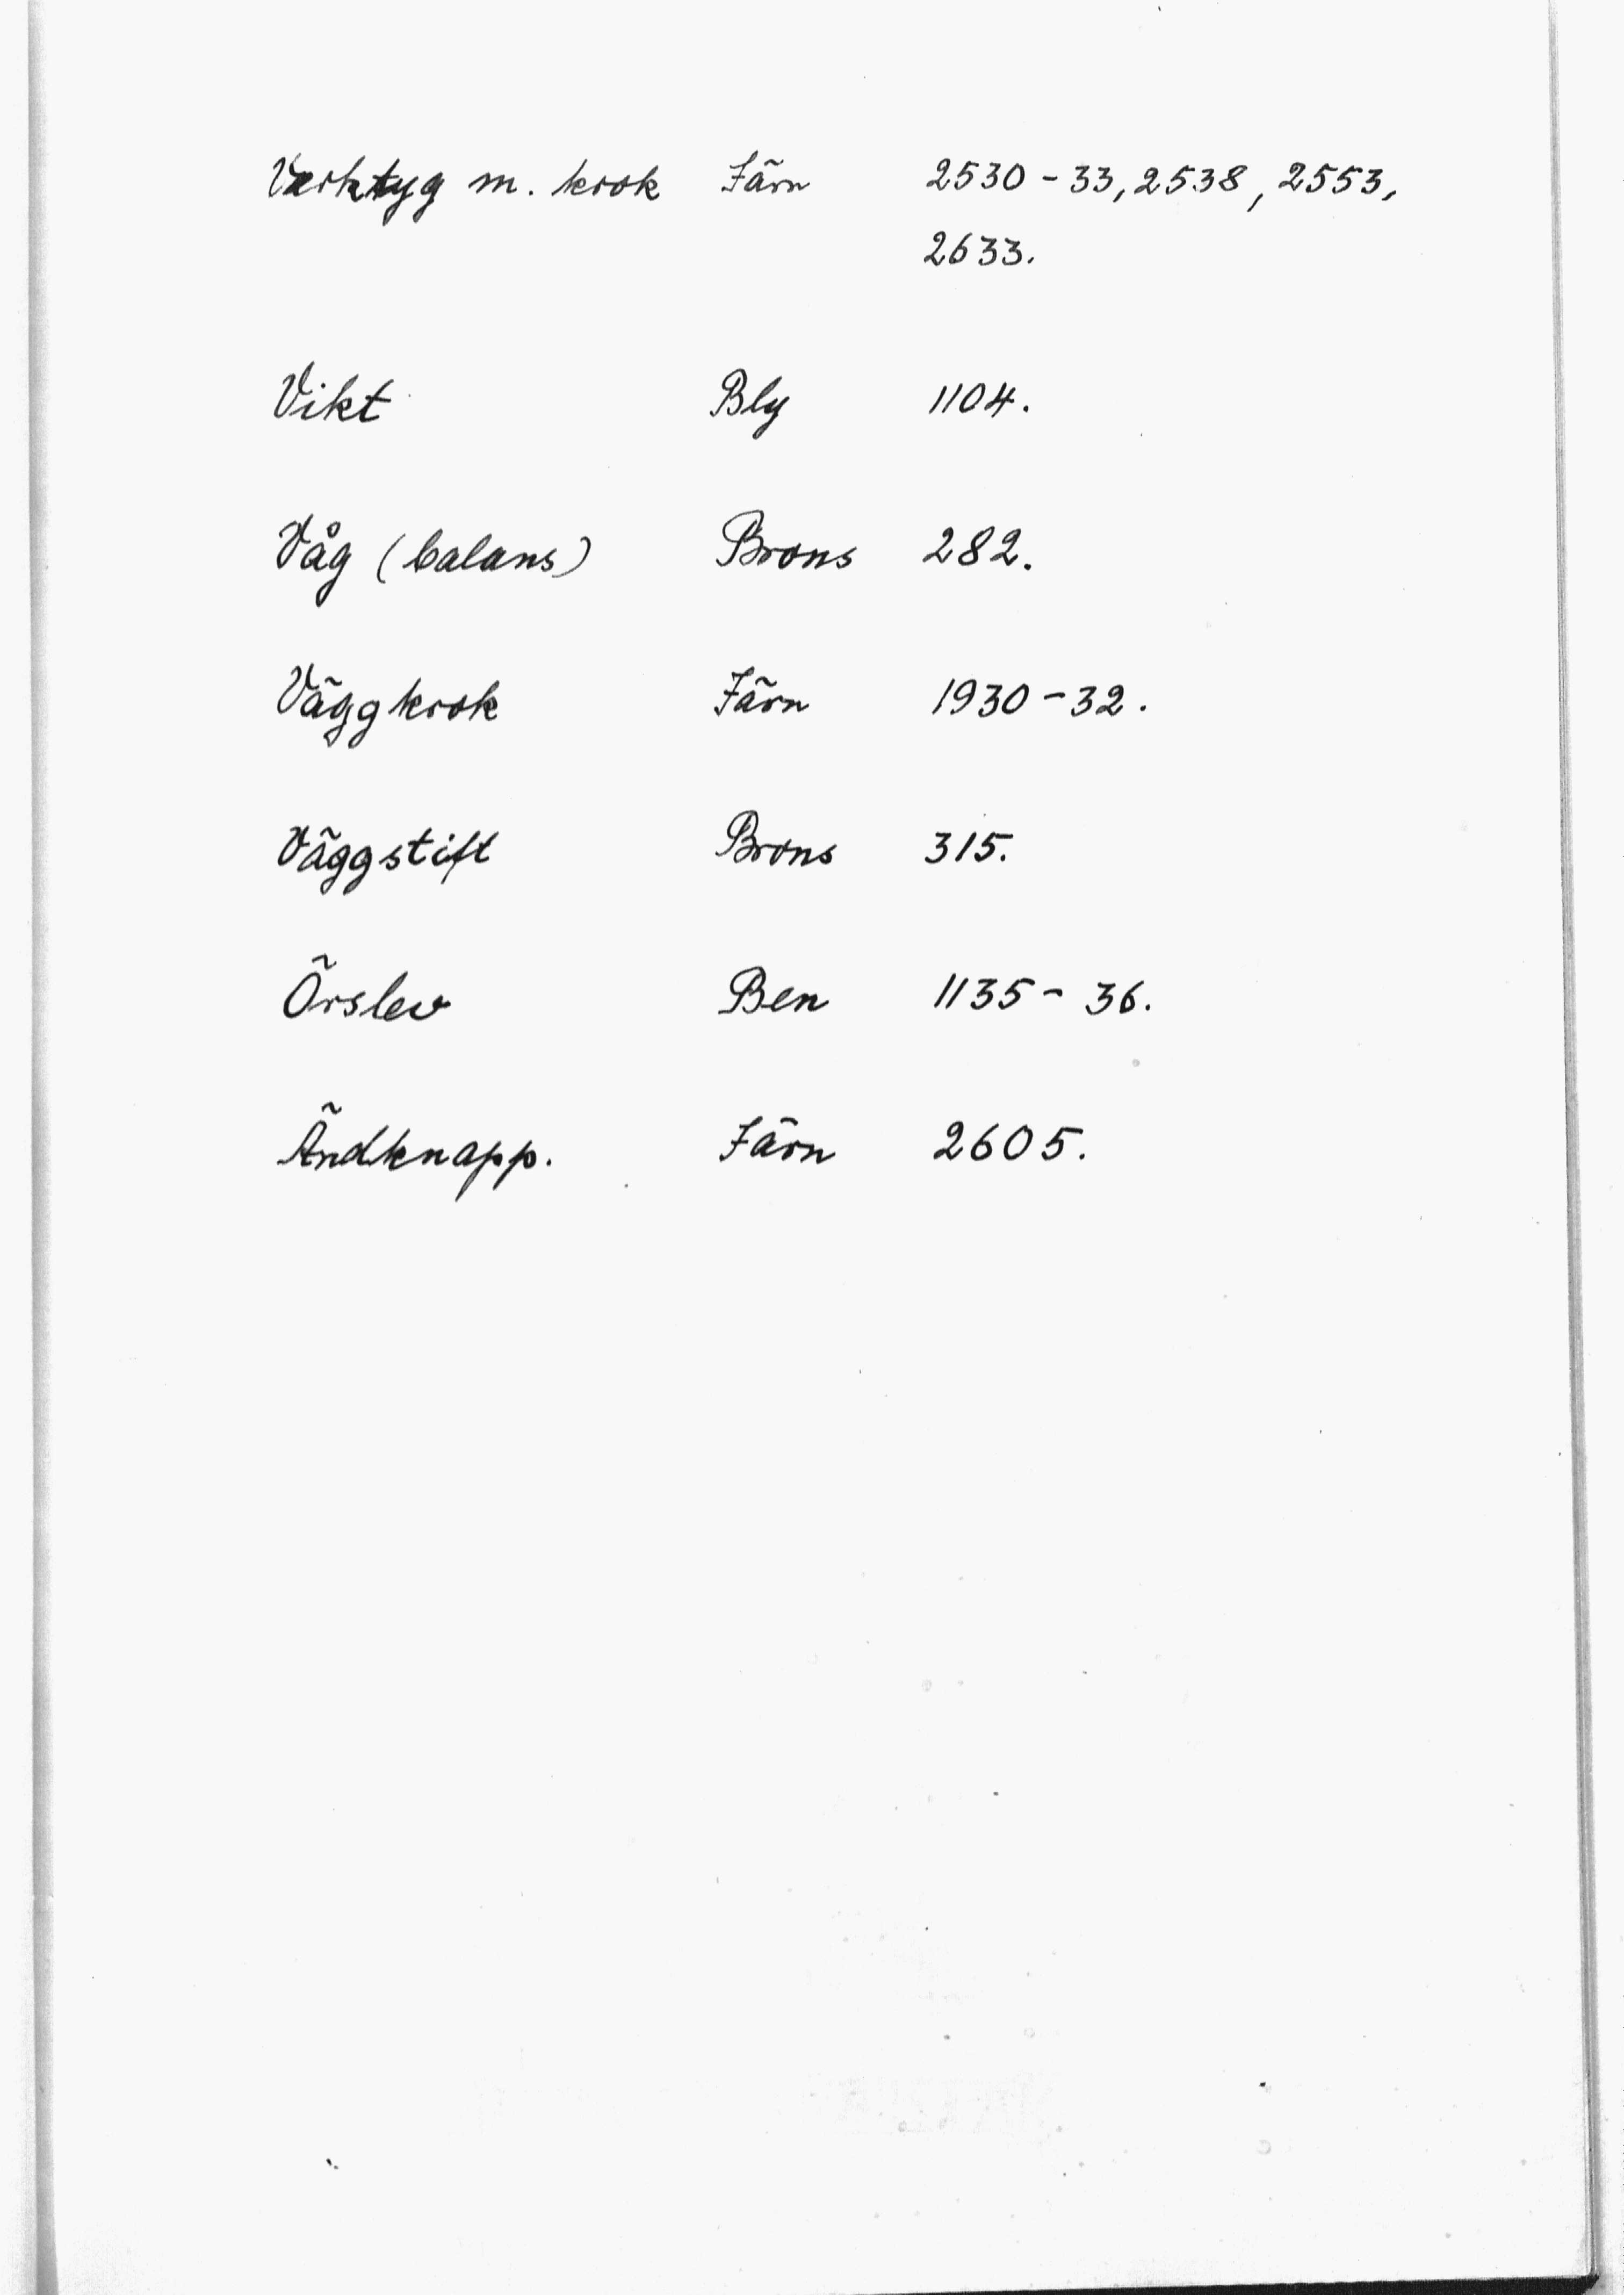 Verktyg m. krok Järn 2530-33, 2538, 2553,
2633.
Vikt Bly 1104.
Våg (balans) Brons 282.
Väggkrok Järn 1930-32.
Väggstift Brons 315.
Örslev Ben 1135-36.
Ändknapp. Järn 2605.